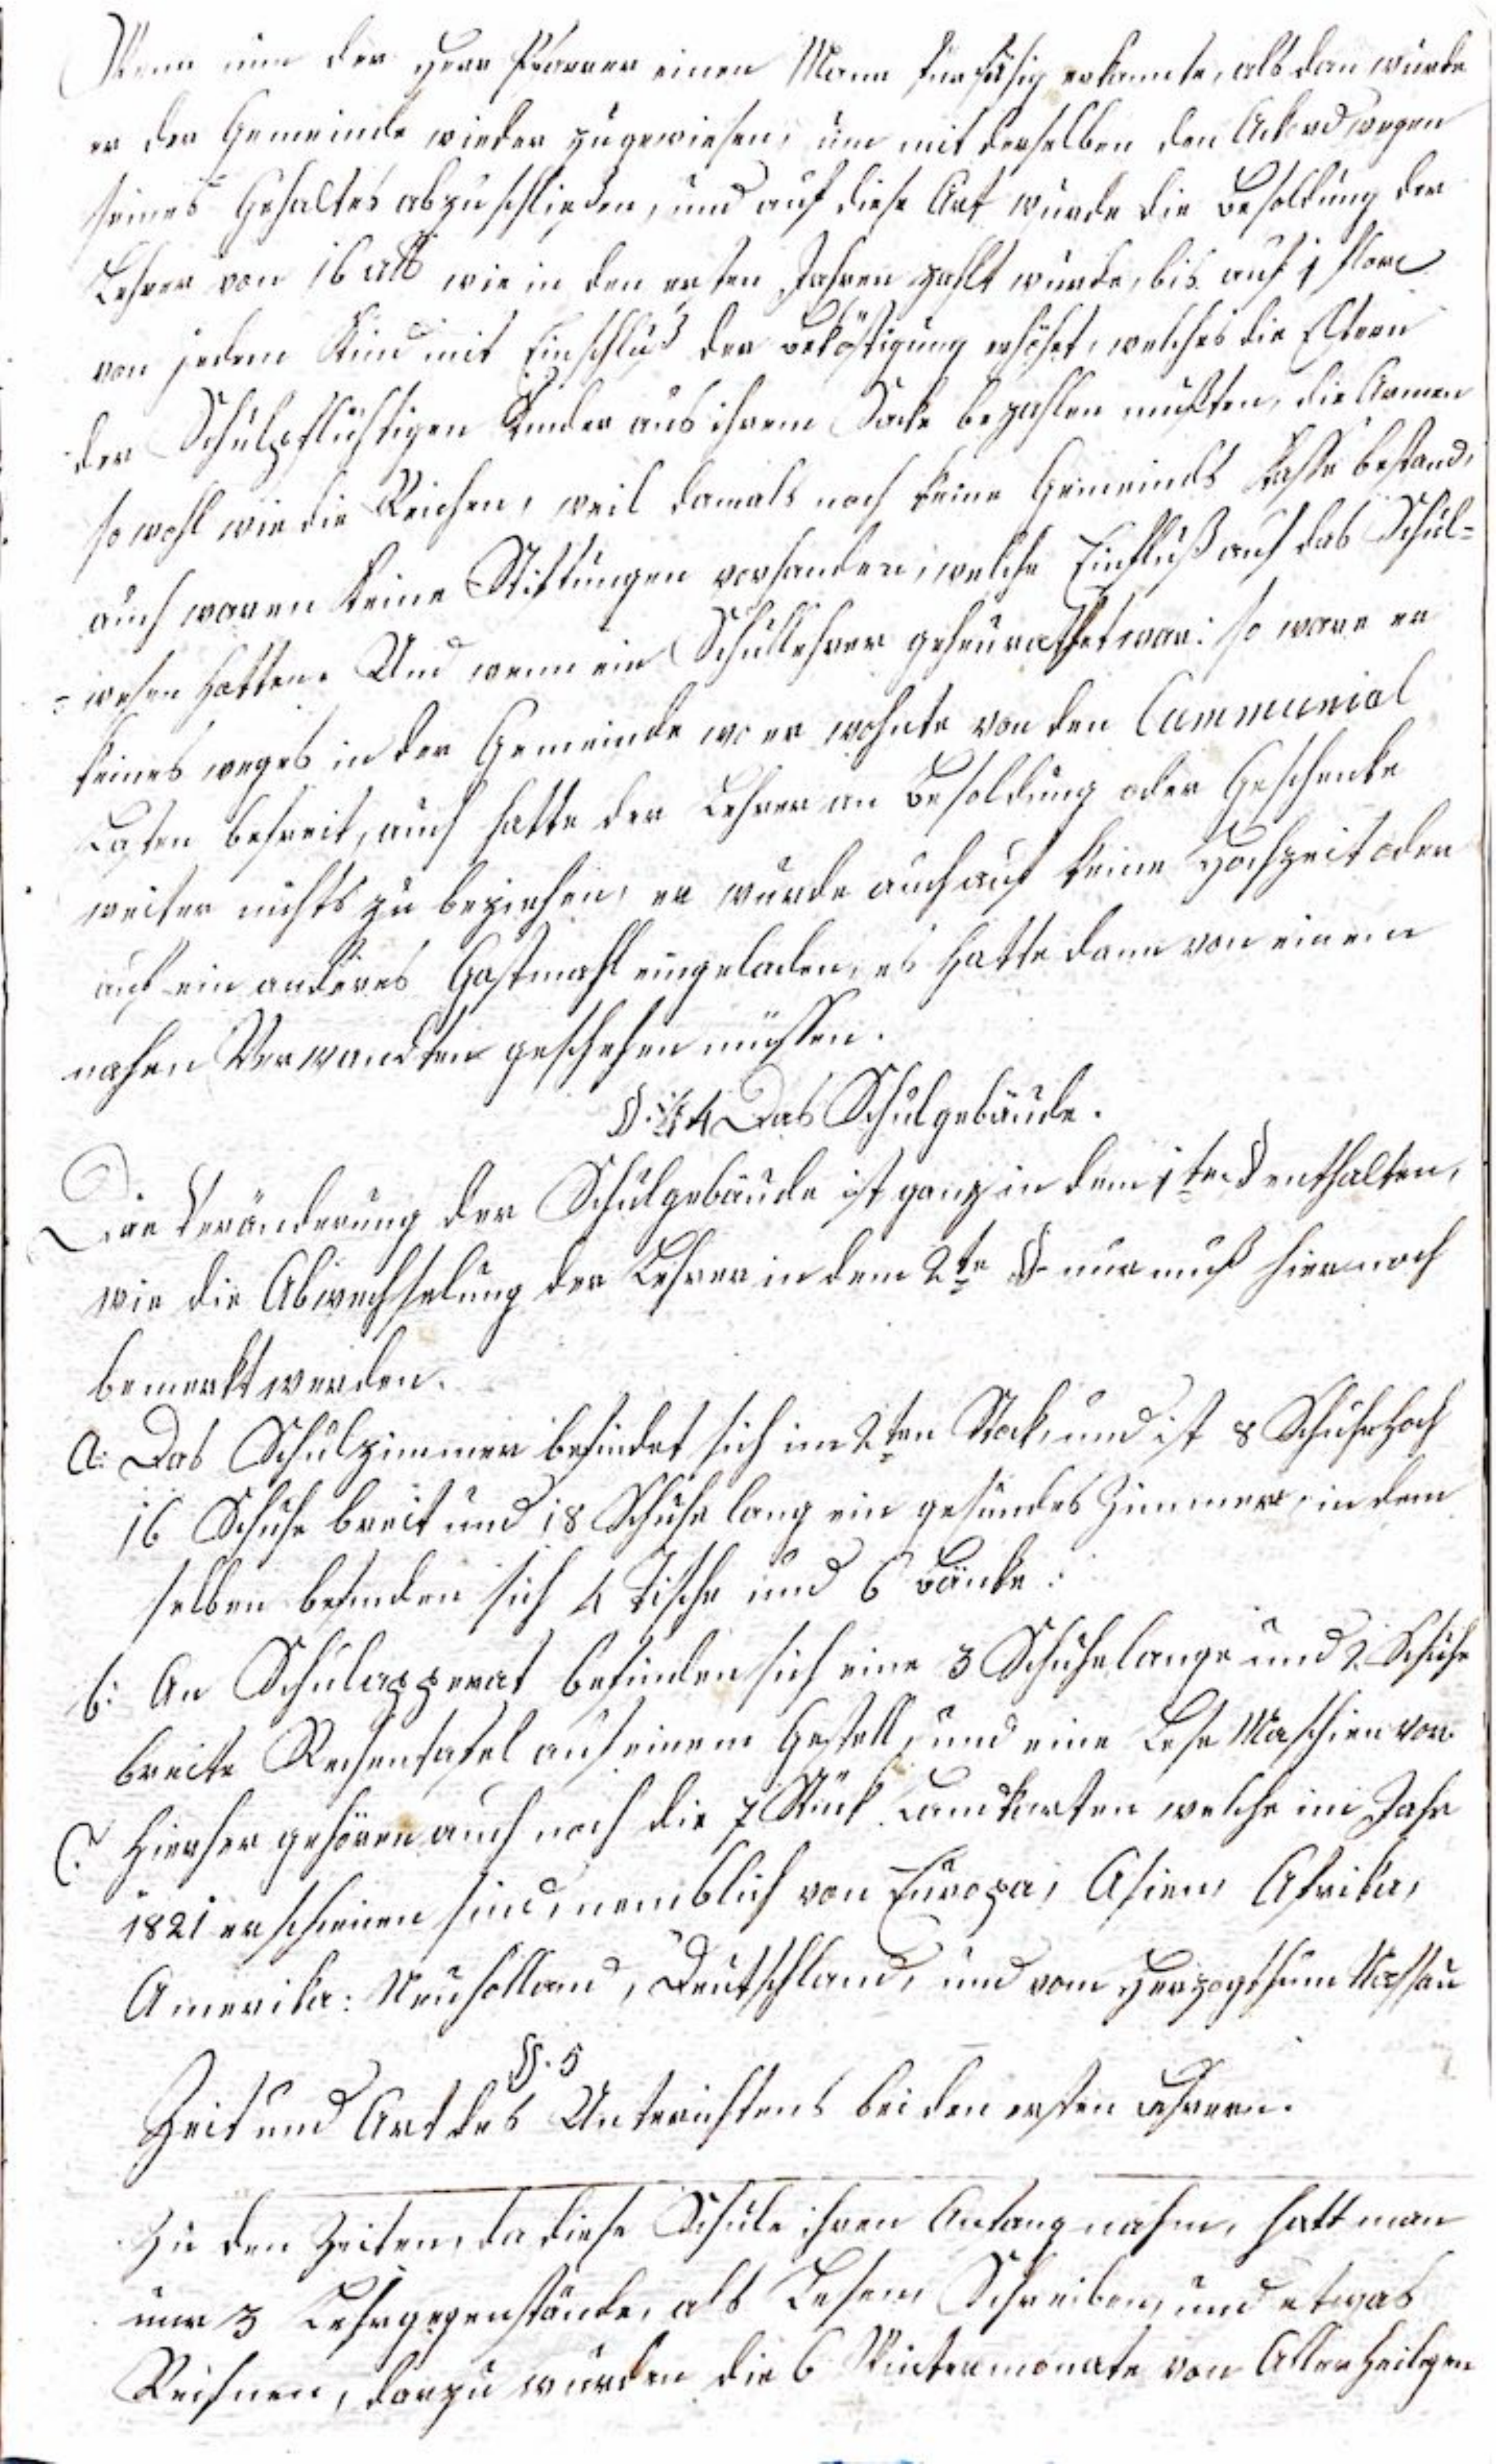 Wenn nun der Herr Pfarrer einen Mann für fähig erkannte, als dan wurde
er der Gemeinde wieder zugewiesen, um mit derselben den Ackord wegen
seines Gehaltes abzuschließen, und auf diese Art wurde die Besoldung der
Lehrer von 16 alb wie in den ersten Jahren zahlt wurde, bis auf 1 flore
von jedem Kind mit Einschluß der Beköstigung erhöhet, welches die Eltern
der Schulpflichtigen Kinder aus ihrem Sacke bezahlen mußten, die Armen
so wohl wie die Reichen, weil damals noch keine Gemeinds Kasse bestand,
auch waren keine Stiftungen vorhanden, welche Einfluß auf das Schul-
-wesen hatten. Und wenn ein Schullehrer geheurathet war: so ware er
keines weges in der Gemeinde wo er wohnte von den Communial
Lasten befreit, auch hatte der Lehrer an Besoldung oder Geschenke
weiter nichts zu beziehen, er wurde auch auf keine Hochzeit oder
auf ein anderes Gastmahl eingeladen, es hatte dann von einem
nahen Verwandten geschehen müssen.
§. 4 Das Schulgebäude.
Die Veränderung der Schulgebäude ist ganz in dem 1ten § enthalten,
wie die Abwechselung der Lehrer in dem 2te § nur muß hier noch
bemerkt werden.
a: Das Schulzimmer befindet sich im 2ten Stock, und ist 8 Schuhe hoch
16 Schuhe breit und 18 Schuhe lang ein gesundes Zimmer, in dem
selben befinden sich 4 Tische und 6 Bänke:
b: An Schulapperat befinden sich eine 3 Schuhe lange und 2 Schuhe
breite Rechentafel auf einem Gestell, und eine Lese Maschien vor.
C: Hierher gehören auch noch die 7 Stück Landkarten welche im Jahr
1821 erschienen sind, nemblich von Europa, Asien, Afrika,
Amerika: Neuholland, Deutschland, und vom Herzogthum Nassau
§. 5
Zeit und Art des Unterichtens bei den ersten Lehrern.
Zu den Zeiten, da diese Schule ihren Anfang nahm, hatt man
nur 3 Lehrgegenstände, als Lesen, Schreiben, und etwas
Rechnen, darzu wurden die 6 Wintermonate von Allerheilgen